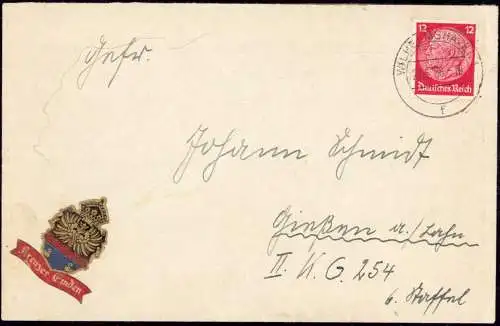 12 12
Deutsches Reich
Gefr.
Johann Schmidt
Gießen a./Lahn
II. K. G. 254
6. Staffel
Kreuzer Emden